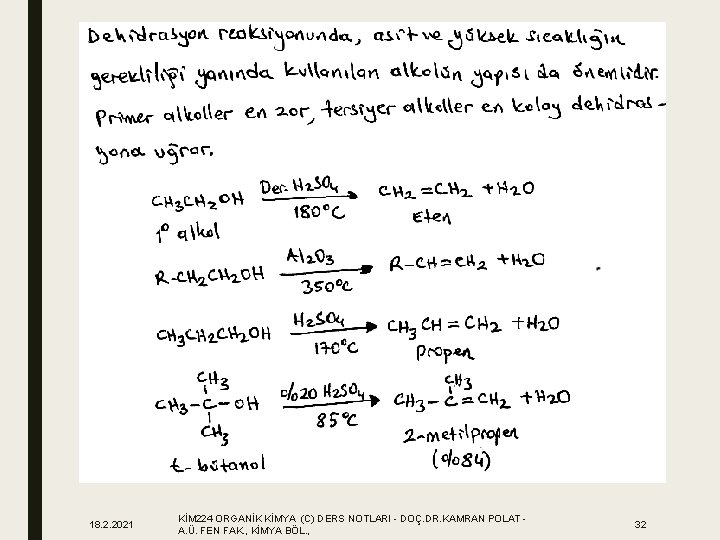 Dehidrasyon reaksiyonunda, asit ve yüksek sıcaklığın
gerekliliği yanında kullanılan alkolün yapısı da önemlidir.
Primer alkoller en zor, tersiyer alkoller en kolay dehidras-
yona uğrar.
CH3CH2OH Der. H2SO4 180°C → CH2=CH2 + H2O
1° alkol Eten
R-CH2CH2OH Al2O3 350°C → R-CH=CH2 + H2O
CH3CH2CH2OH H2SO4 170°C → CH3CH=CH2 + H2O
Propen
CH3 CH3
CH3-C-OH %20 H2SO4 85°C → CH3-C=CH2 + H2O
CH3 2-metilpropen
t-bütanol (%84)
18.2.2021
KİM224 ORGANİK KİMYA (C) DERS NOTLARI - DOÇ.DR.KAMRAN POLAT -
A.Ü. FEN FAK., KİMYA BÖL.,
32